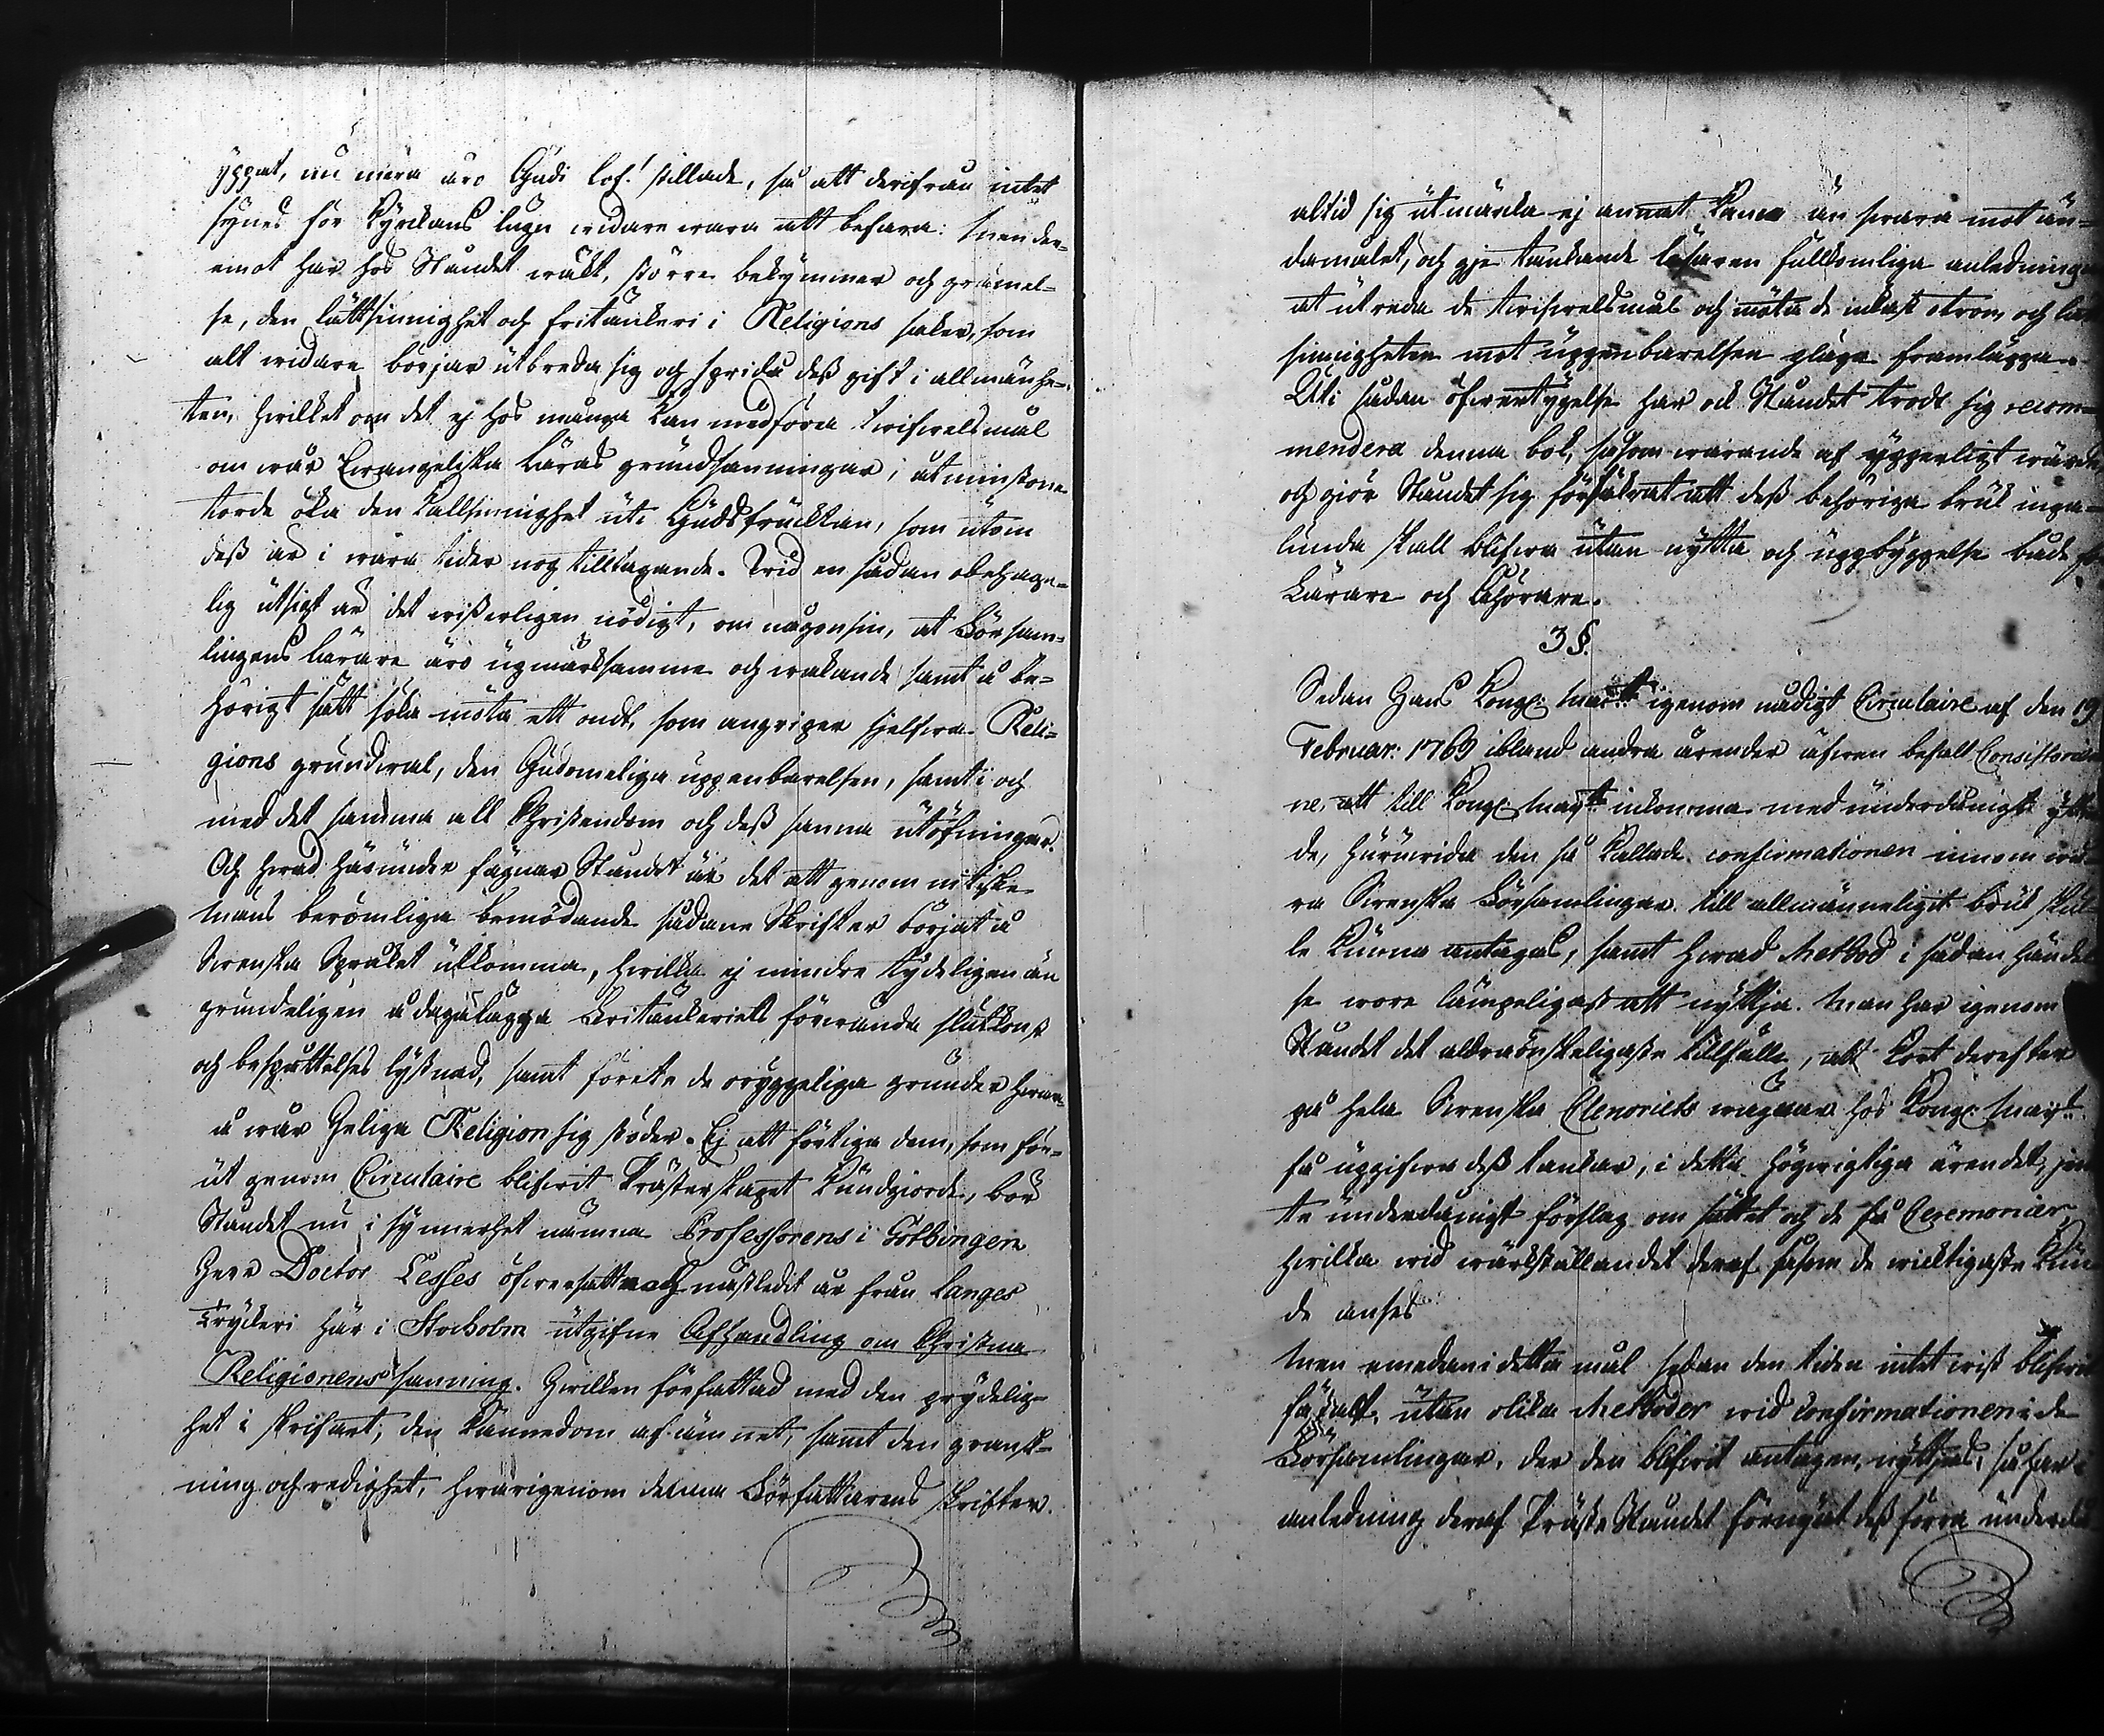 yppat, nu mera äro Gudi lof! stillade, så att derifrån intet
synes för Kyrkans lugn widare wara att befara: Men der-
emot har hos Ståndet wäkt, större bekymmer och grämel-
se, den lättsinnighet och fritänkeri i Religions saker, som
alt widare börjar utbreda sig och sprida deß gift i allmänhe-
ten, hwilket om det ej hos många kan medföra twifwelsmål
om wår Ewangeliska Läras grundsanningar, åtminstone
torde öka den kallsinnighet uti Gudsfrucktan, som utom
deß är i wåra tider nog tilltagande. Wid en sådan obehage-
lig utsigt är det wißerligen nödigt, om någonsin, at Försam-
lingens lärare äro upmärksamme och wakande samt å be-
hörigt sätt söka möta ett ondt, som angriper sjelfwa Reli-
gions grundwal, den Gudomeliga uppenbarelsen, samt i och
med det samma all Christendom och deß sanna utöfningar.
Och hwad härunder fägnar Ståndet är det att genom nitiske
Mäns berömliga bemödande sådane Skrifter börjat å
Swenska Språket utkomma, hwilka ej mindre tydeligen än
grundeligen å dagalägga Fritänkeriets förwända slutkonst
och bespottelses lystnad, samt förete de oryggeliga grunder hwar-
å wår Heliga Religion sig stöder. Ej att förtiga dem, som för-
ut genom Circulaire blifwit Prästerskapet kundgiorde, bör
Ståndet nu i synnerhet nämna Professorens i Göttingen
Herr Doctor Lesses öfwersatta och nästledit år från Langes
Tryckeri här i Stocholm utgifne Afhandling om Christna
Religionens sanning. Hwilken författad med den prydelig-
het i skrifart, den kännedom af ämnet, samt den gransk-
ning och redighet, hwarigenom denna Författarens skrifter
altid sig utmärka ej annat kan än swara mot än-
damålet, och gje tänkande läsaren fullkomliga anledningar
at utreda de twifwelsmål och möta de inkast otron och lätt
sinnigheten mot uppenbarelsen pläga framlägga.
Uti sådan öfwertygelse har ock Ståndet trodt sig recom-
mendera denna bok, såsom warande af ypperligt wärde,
och giör Ståndet sig försäkrat att deß behöriga bruk inga-
lunda skall blifwa utan nytta och uppbyggelse både för
Lärare och Åhörare.
3 §.
Sedan Hans Kongl: Maj:tt igenom nådigt Circulaire af den 19
Februar: 1769 ibland andra ärender äfwen befalt Consistorier
ne, att till Kongl: Maj:tt inkomma med underdånigt yttran
de, huruwida den så kallade confirmationen innom wå-
ra Swenska Församlingar till allmänneligit bruk skul-
le kunna antagas, samt hwad Method i sådan händel
se wore lämpeligast att nyttja. Man har igenom
Ståndet det aldraönskeligaste tillfälle, att kort derefter
på hela Swenska Clericiets wägnar hos Kongl: Maj:t
få uppgifwa deß tankar, i detta högwigtiga ärendet, jem
te underdånigt förslag om sättet och de få Ceremonier,
hwilka wid wärkställandet deraf såsom de wicktigaste kun
de anses.
Men emedan i detta mål sedan den tiden intet wist blifwit
fastält, utan olika Methoder wid confirmationen i de
Församlingar, der den blifwit antagen, nyttjas, så har i
anledning deraf Präste Ståndet förnyat deß förra underdå